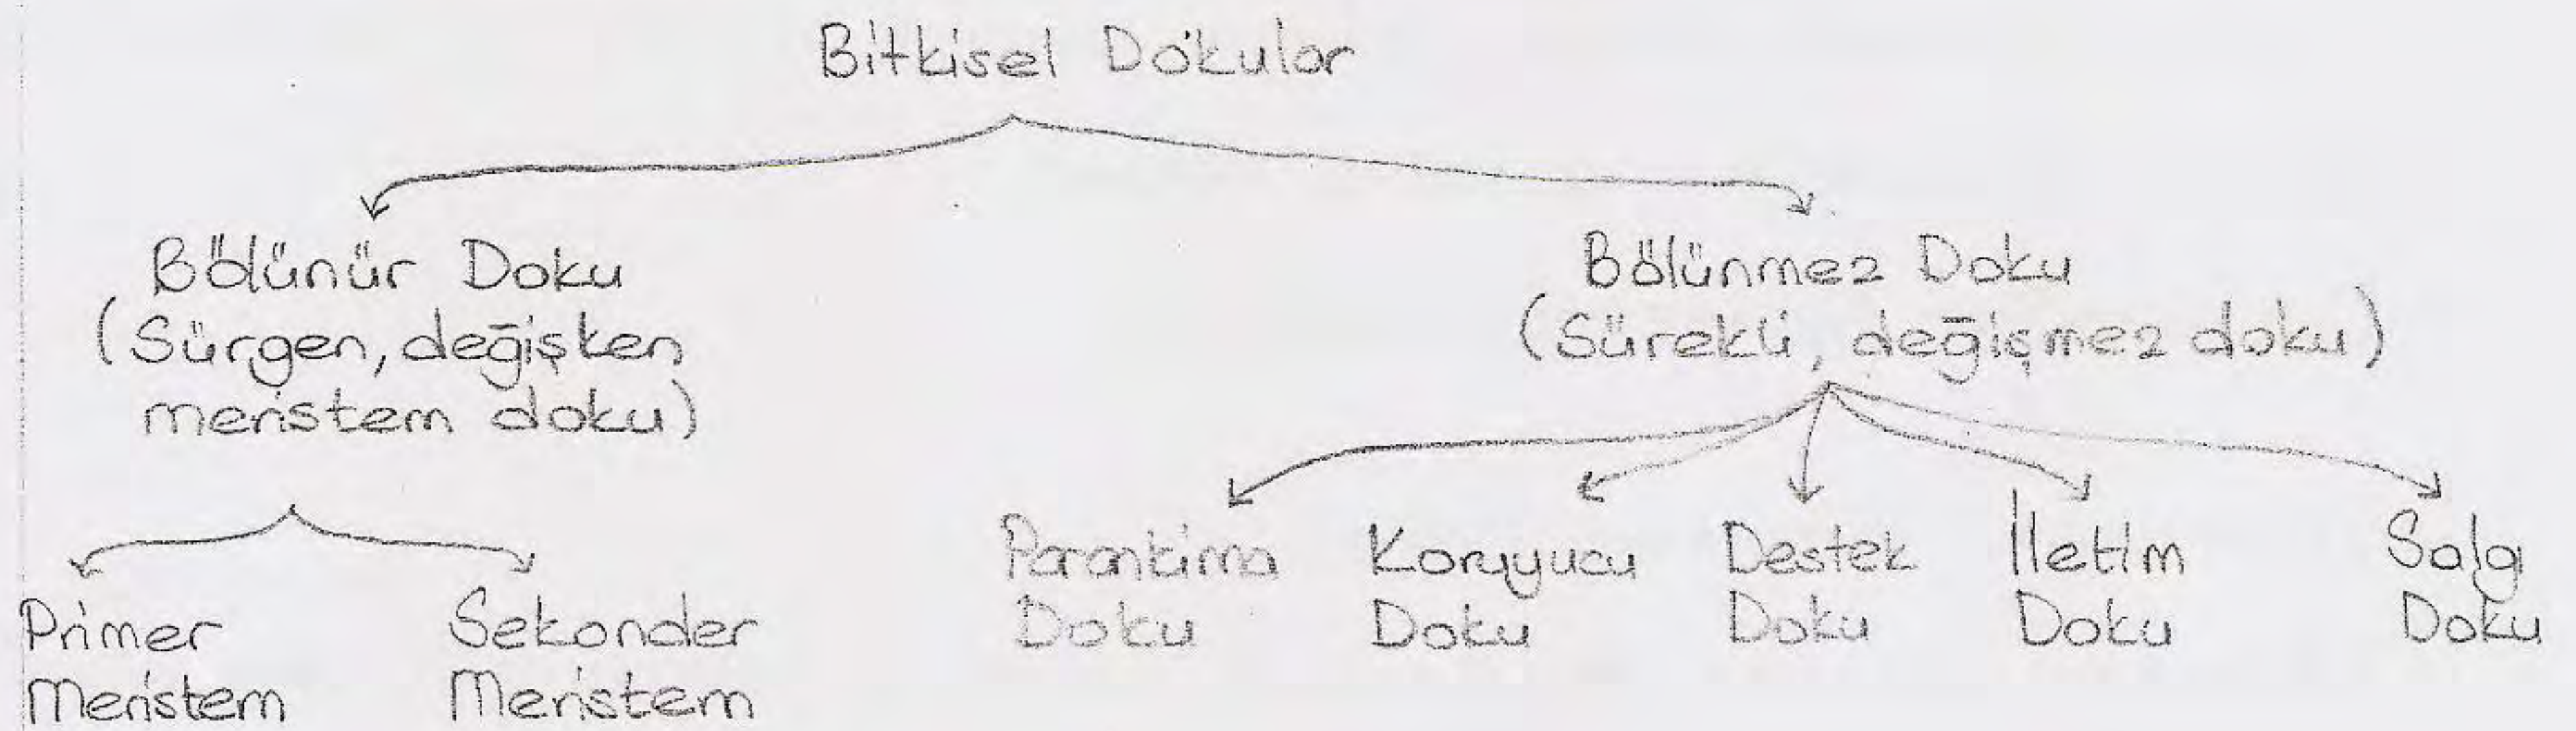 Bitkisel Dokular
Bölünür Doku
(Sürgen, değişken
meristem doku)
Bölünmez Doku
(Sürekli, değişmez doku)
Primer
Meristem
Sekonder
Meristem
Parankima
Doku
Koruyucu
Doku
Destek
Doku
İletim
Doku
Salgı
Doku